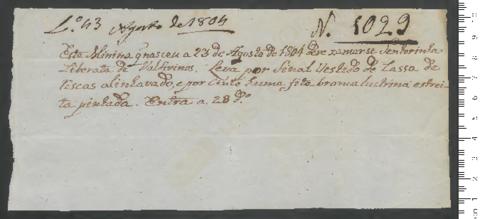 L.º 43 Agosto de 1804 N. 1029
Esta Minina q nasceu a 23 de Agosto de 1804 deve xamarse Senhorinha
Liberata de Valsirinos. Leva por Sinal Vestido de Cassa de
riscas alinhavado, e por Cinto huma fita branca lustrina estrei
ta pintada. Entra a 28 d.º